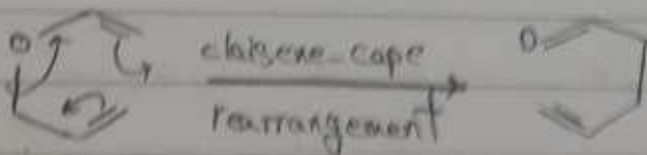 O
claisene-cope
O
rearrangement